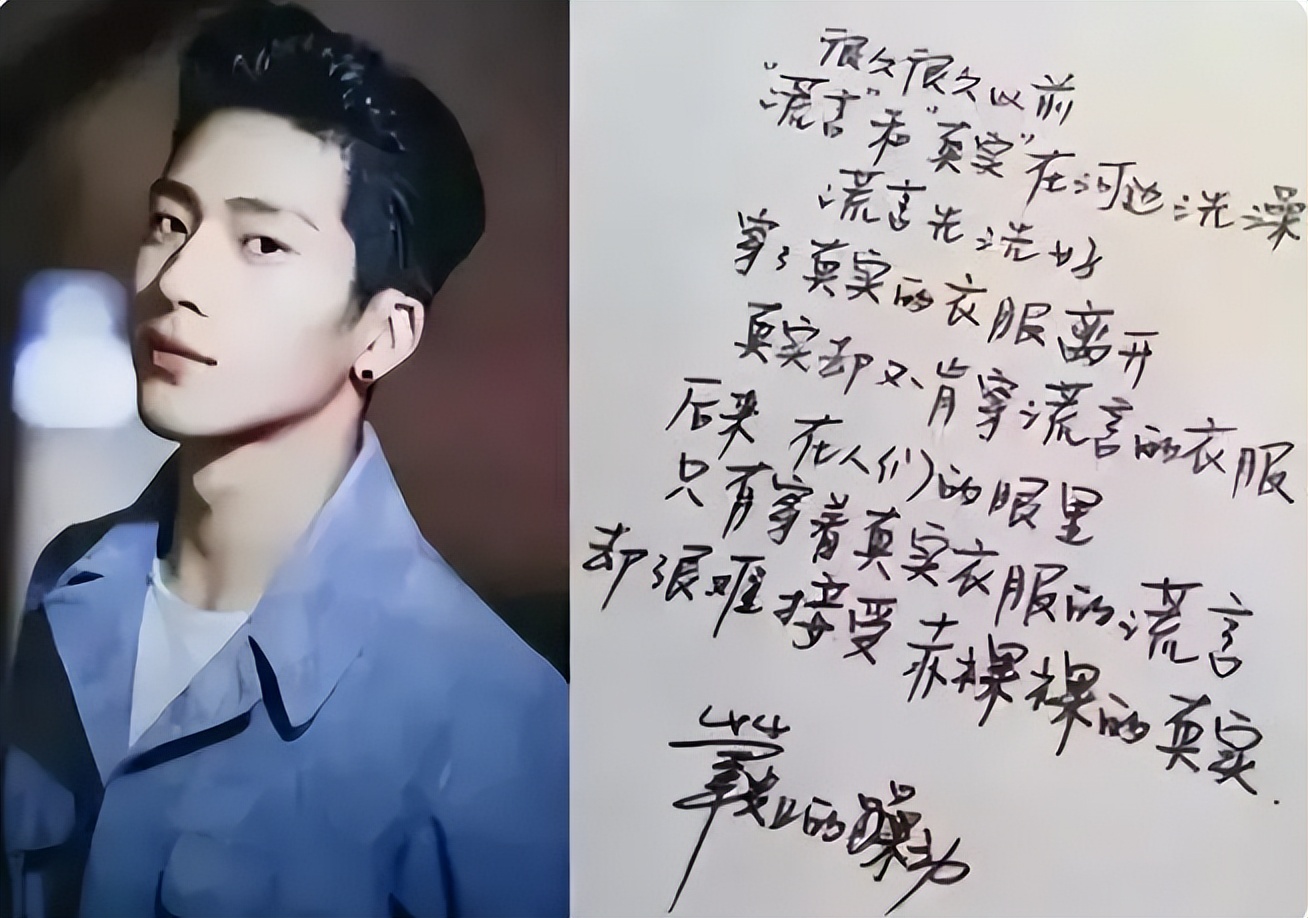 很久很久以前
"谎言"和"真实"在河边洗澡
谎言先洗好
穿了真实的衣服离开
真实却不肯穿谎言的衣服
后来 在人们的眼里
只有穿着真实衣服的谎言
却很难接受赤裸裸的真实.
上的躁动